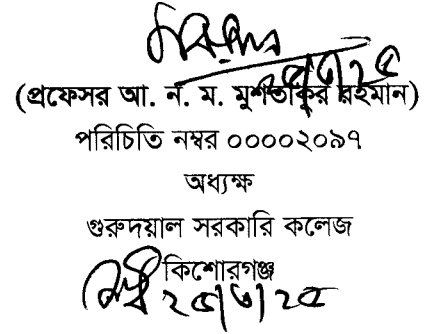 (প্রফেসর আ. ন. ম. মুশতাকুর রহমান)
পরিচিতি নম্বর ০০০০২০৯৭
অধ্যক্ষ
গুরুদয়াল সরকারি কলেজ
কিশোরগঞ্জ